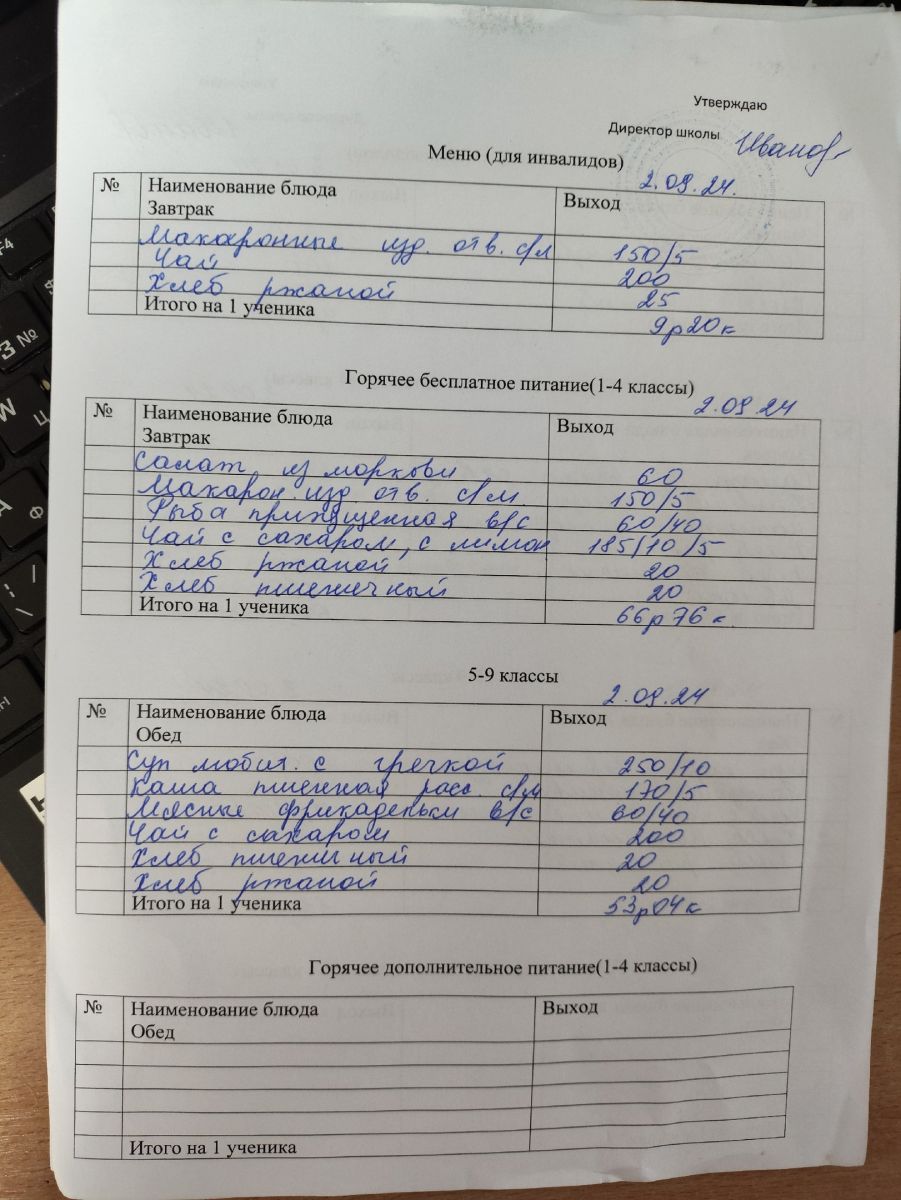 Утверждаю
Директор школы Иванов
Меню (для инвалидов)
2.09.24.
№ Наименование блюда Выход
Завтрак
Макаронные изд. отв. с/м 150/5
Чай 200
Хлеб ржаной 25
Итого на 1 ученика 9р20к
Горячее бесплатное питание(1-4 классы)
2.09.24
№ Наименование блюда Выход
Завтрак
Салат из моркови 60
Макарон. изд отв. с/м 150/5
Рыба припущенная в/с 60/40
Чай с сахаром, с лимон 185/10/5
Хлеб ржаной 20
Хлеб пшеничный 20
Итого на 1 ученика 66р76к.
5-9 классы
2.09.24
№ Наименование блюда Выход
Обед
Суп любит. с гречкой 250/10
Каша пшенная расс. с/м 170/5
Мясные фрикадельки в/с 60/40
Чай с сахаром 200
Хлеб пшеничный 20
Хлеб ржаной 20
Итого на 1 ученика 53р04к
Горячее дополнительное питание(1-4 классы)
№ Наименование блюда Выход
Обед
Итого на 1 ученика